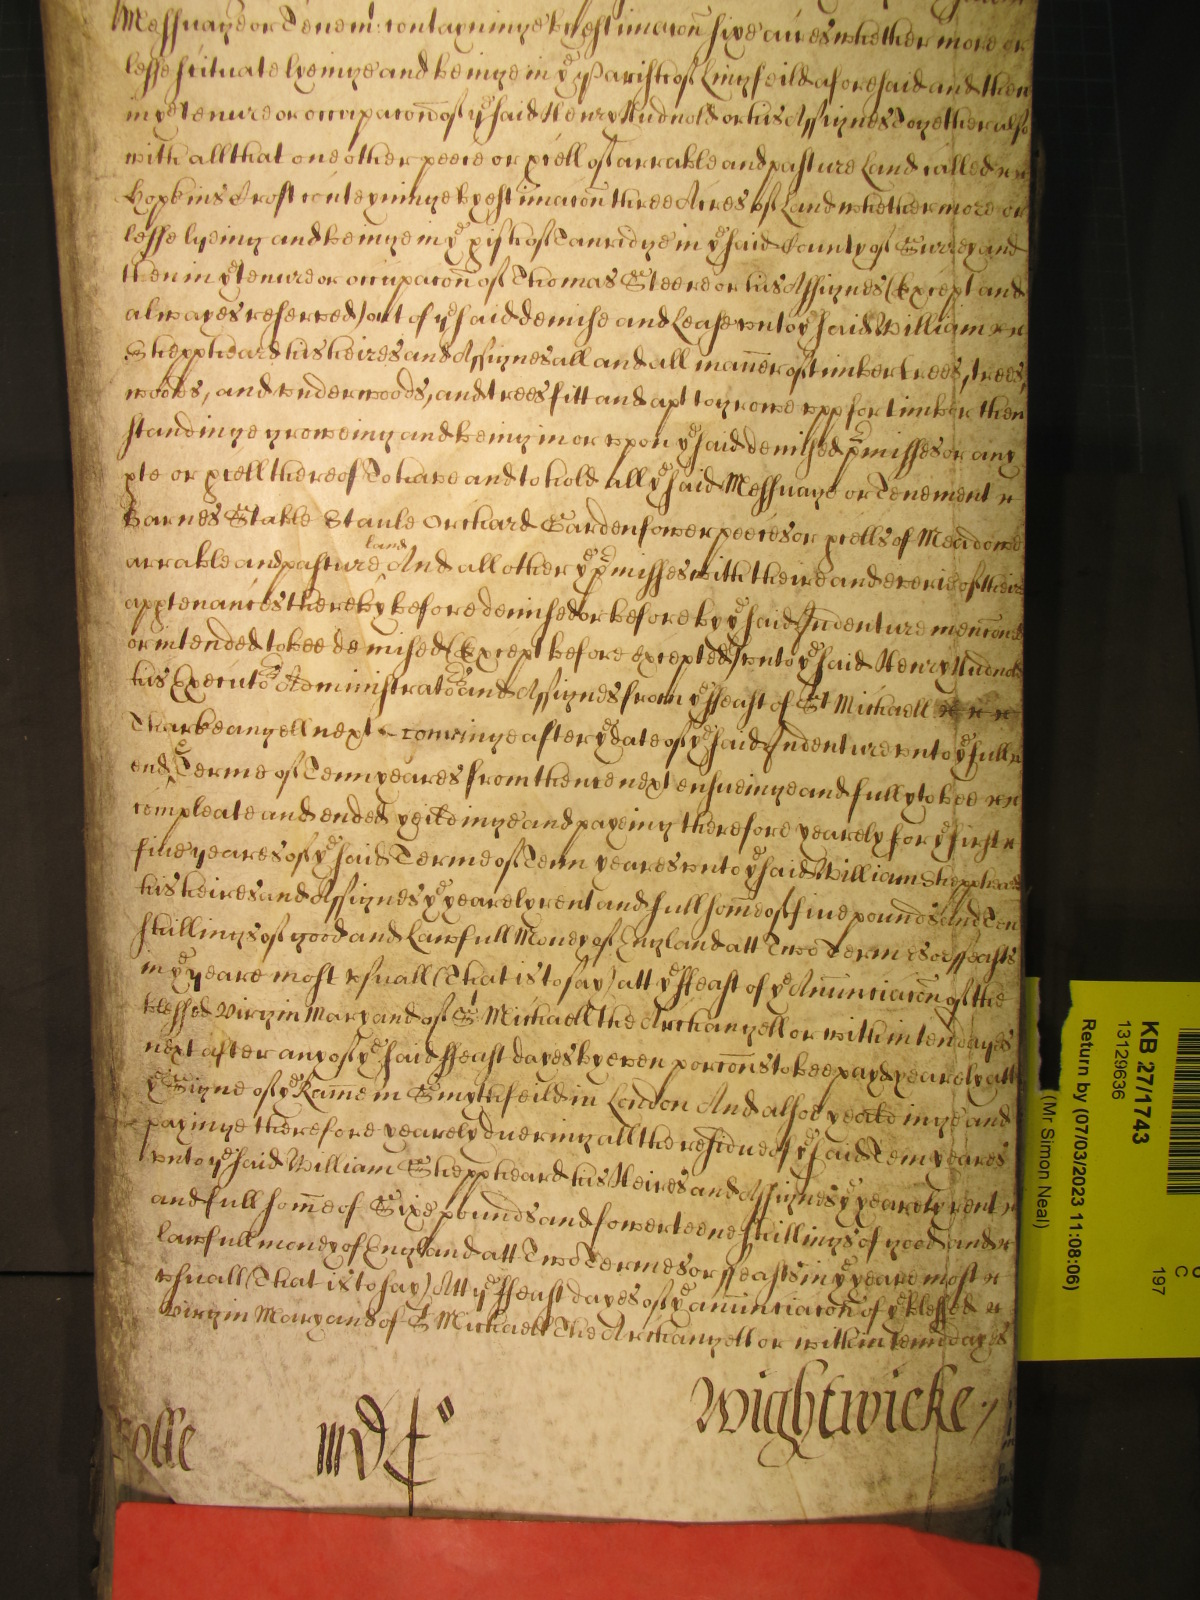 Messuage or Tenemt: contayninge by estimacon sixe acres whether more or
lesse scituate lyeinge and beinge in ye Parish of Lingfeild aforesaid and then
in ye tenure or occupacon of ye said Henry Hudnold or his Assignes Together also
with all that one other peece or pcell of arrable and pasture Land called
Hopkins Croft conteyninge by estimacon three Acres of Land whether more or
lesse lyeing and beinge in ye pish of Tanridge in ye said County of Surrey and
then in ye tenure or occupacon of Thomas Steere or his Assignes (Except and
alwayes reserved) out of ye said demise and Lease unto ye said William
Sheppheard his heires and Assignes all and all manner of timber trees, trees,
woods, and underwoods, and trees fitt and apt to growe upp for timber then
standinge groweing and being in or upon ye said demised pmisses or any
pte or pcell thereof To have and to hold all ye said Messuage or Tenement
Barnes Stable Staule Orchard Garden fower peeces or pcells of Meadowe
arrable and pasture land And all other ye pmisses with theire and everie of theire
apptenances thereby before demised or before by ye said Indenture menconed
or intended to bee demised (Except before excepted) unto ye said Henry Hudnold
his Executors Administrators and Assignes from ye ffeast of St Michaell
Tharkeangell next comeinge after ye date of ye said Indenture unto ye full
end Terme of Tenn yeares from thence next ensueinge and fully to bee
compleate and ended yeildinge and payeing therefore yearely for ye first
five yeares of ye said Terme of Tenn yeares unto ye said William Sheppheard
his heires and Assignes ye yearely rent and full some of five pounds and Ten
shillings of good and Lawfull Money of England att Two Termes or ffeasts
in ye yeare most usuall (That is to say) att ye ffeast of ye Anunciacon of the
blessed Virgin Mary and of St Michaell the Archangell or within ten dayes
next after any of ye said ffeast dayes by even porcons to bee payd yearely att
ye Signe of ye Ramme in Smythfeild in London And alsoe yeildinge and
payinge therefore yearely dueringe all the residue of ye said Tenn yeares
unto ye said William Sheppheard his Heires and Assignes ye yearely rent
and full some of Sixe pounds and fowerteene shillings of good and
lawfull money of England att Two Termes or ffeasts in ye yeare most
usuall (That is to say) Att ye ffeast dayes of ye anunciacon of ye blessed
Virgin Mary and of St Michaell The Archangell or within tenn dayes
Wightwicke
KB 27/1743
13129636
Return by (07/03/2023 11:08:06)
(Mr Simon Neal)
C
197